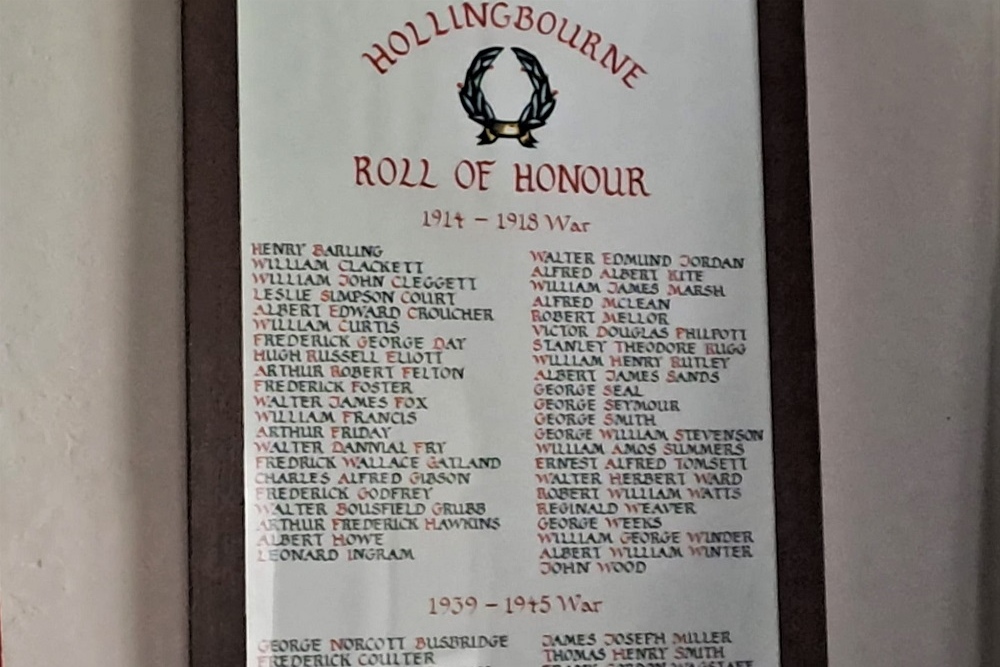 HOLLINGBOURNE
ROLL OF HONOUR
1914 – 1918 War
HENRY BARLING
WILLIAM CLACKETT
WILLIAM JOHN CLEGGETT
LESLIE SIMPSON COURT
ALBERT EDWARD CROUCHER
WILLIAM CURTIS
FREDERICK GEORGE DAY
HUGH RUSSELL ELIOTT
ARTHUR ROBERT FELTON
FREDERICK FOSTER
WALTER JAMES FOX
WILLIAM FRANCIS
ARTHUR FRIDAY
WALTER DANNIAL FRY
FREDRICK WALLACE GATLAND
CHARLES ALFRED GIBSON
FREDERICK GODFREY
WALTER BOUSFIELD GRUBB
ARTHUR FREDERICK HAWKINS
ALBERT HOWE
LEONARD INGRAM
WALTER EDMUND JORDAN
ALFRED ALBERT KITE
WILLIAM JAMES MARSH
ALFRED MCLEAN
ROBERT MELLOR
VICTOR DOUGLAS PHILPOTT
STANLEY THEODORE RUGG
WILLIAM HENRY RUTLEY
ALBERT JAMES SANDS
GEORGE SEAL
GEORGE SEYMOUR
GEORGE SMITH
GEORGE WILLIAM STEVENSON
WILLIAM AMOS SUMMERS
ERNEST ALFRED TOMSETT
WALTER HERBERT WARD
ROBERT WILLIAM WATTS
REGINALD WEAVER
GEORGE WEEKS
WILLIAM GEORGE WINDER
ALBERT WILLIAM WINTER
JOHN WOOD
1939 – 1945 War
GEORGE NORCOTT BUSBRIDGE
FREDERICK COULTER
JAMES JOSEPH MILLER
THOMAS HENRY SMITH
GORDON WAGSTAFF